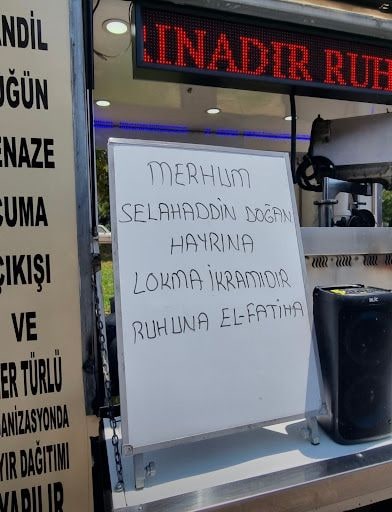 ANDİL
ÜĞÜN
ENAZE
CUMA
ÇIKIŞI
VE
ER TÜRLÜ
GANİZASYONDA
YIR DAĞITIMI
YAPILIR
INADIR RUH
MERHUM
SELAHADDİN DOĞAN
HAYRINA
LOKMA İKRAMIDIR
RUHUNA EL-FATİHA